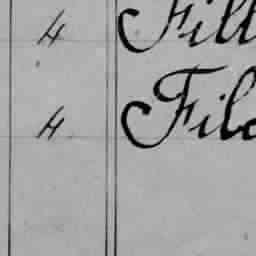 4 Fill
4 Fila